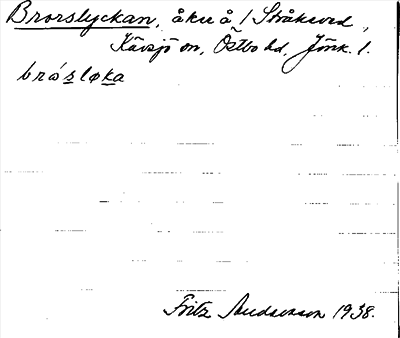 Brorslyckan, åker å / Stråkeved,
Kävsjö sn, Östbo hd, Jönk. l.
brósløka
Fritz Andersson 1938.